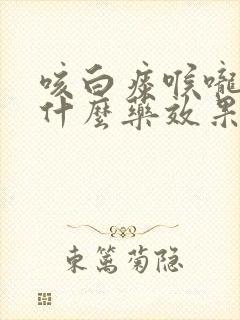 咳白痰喉嚨
什麼藥效果
東篱菊隐